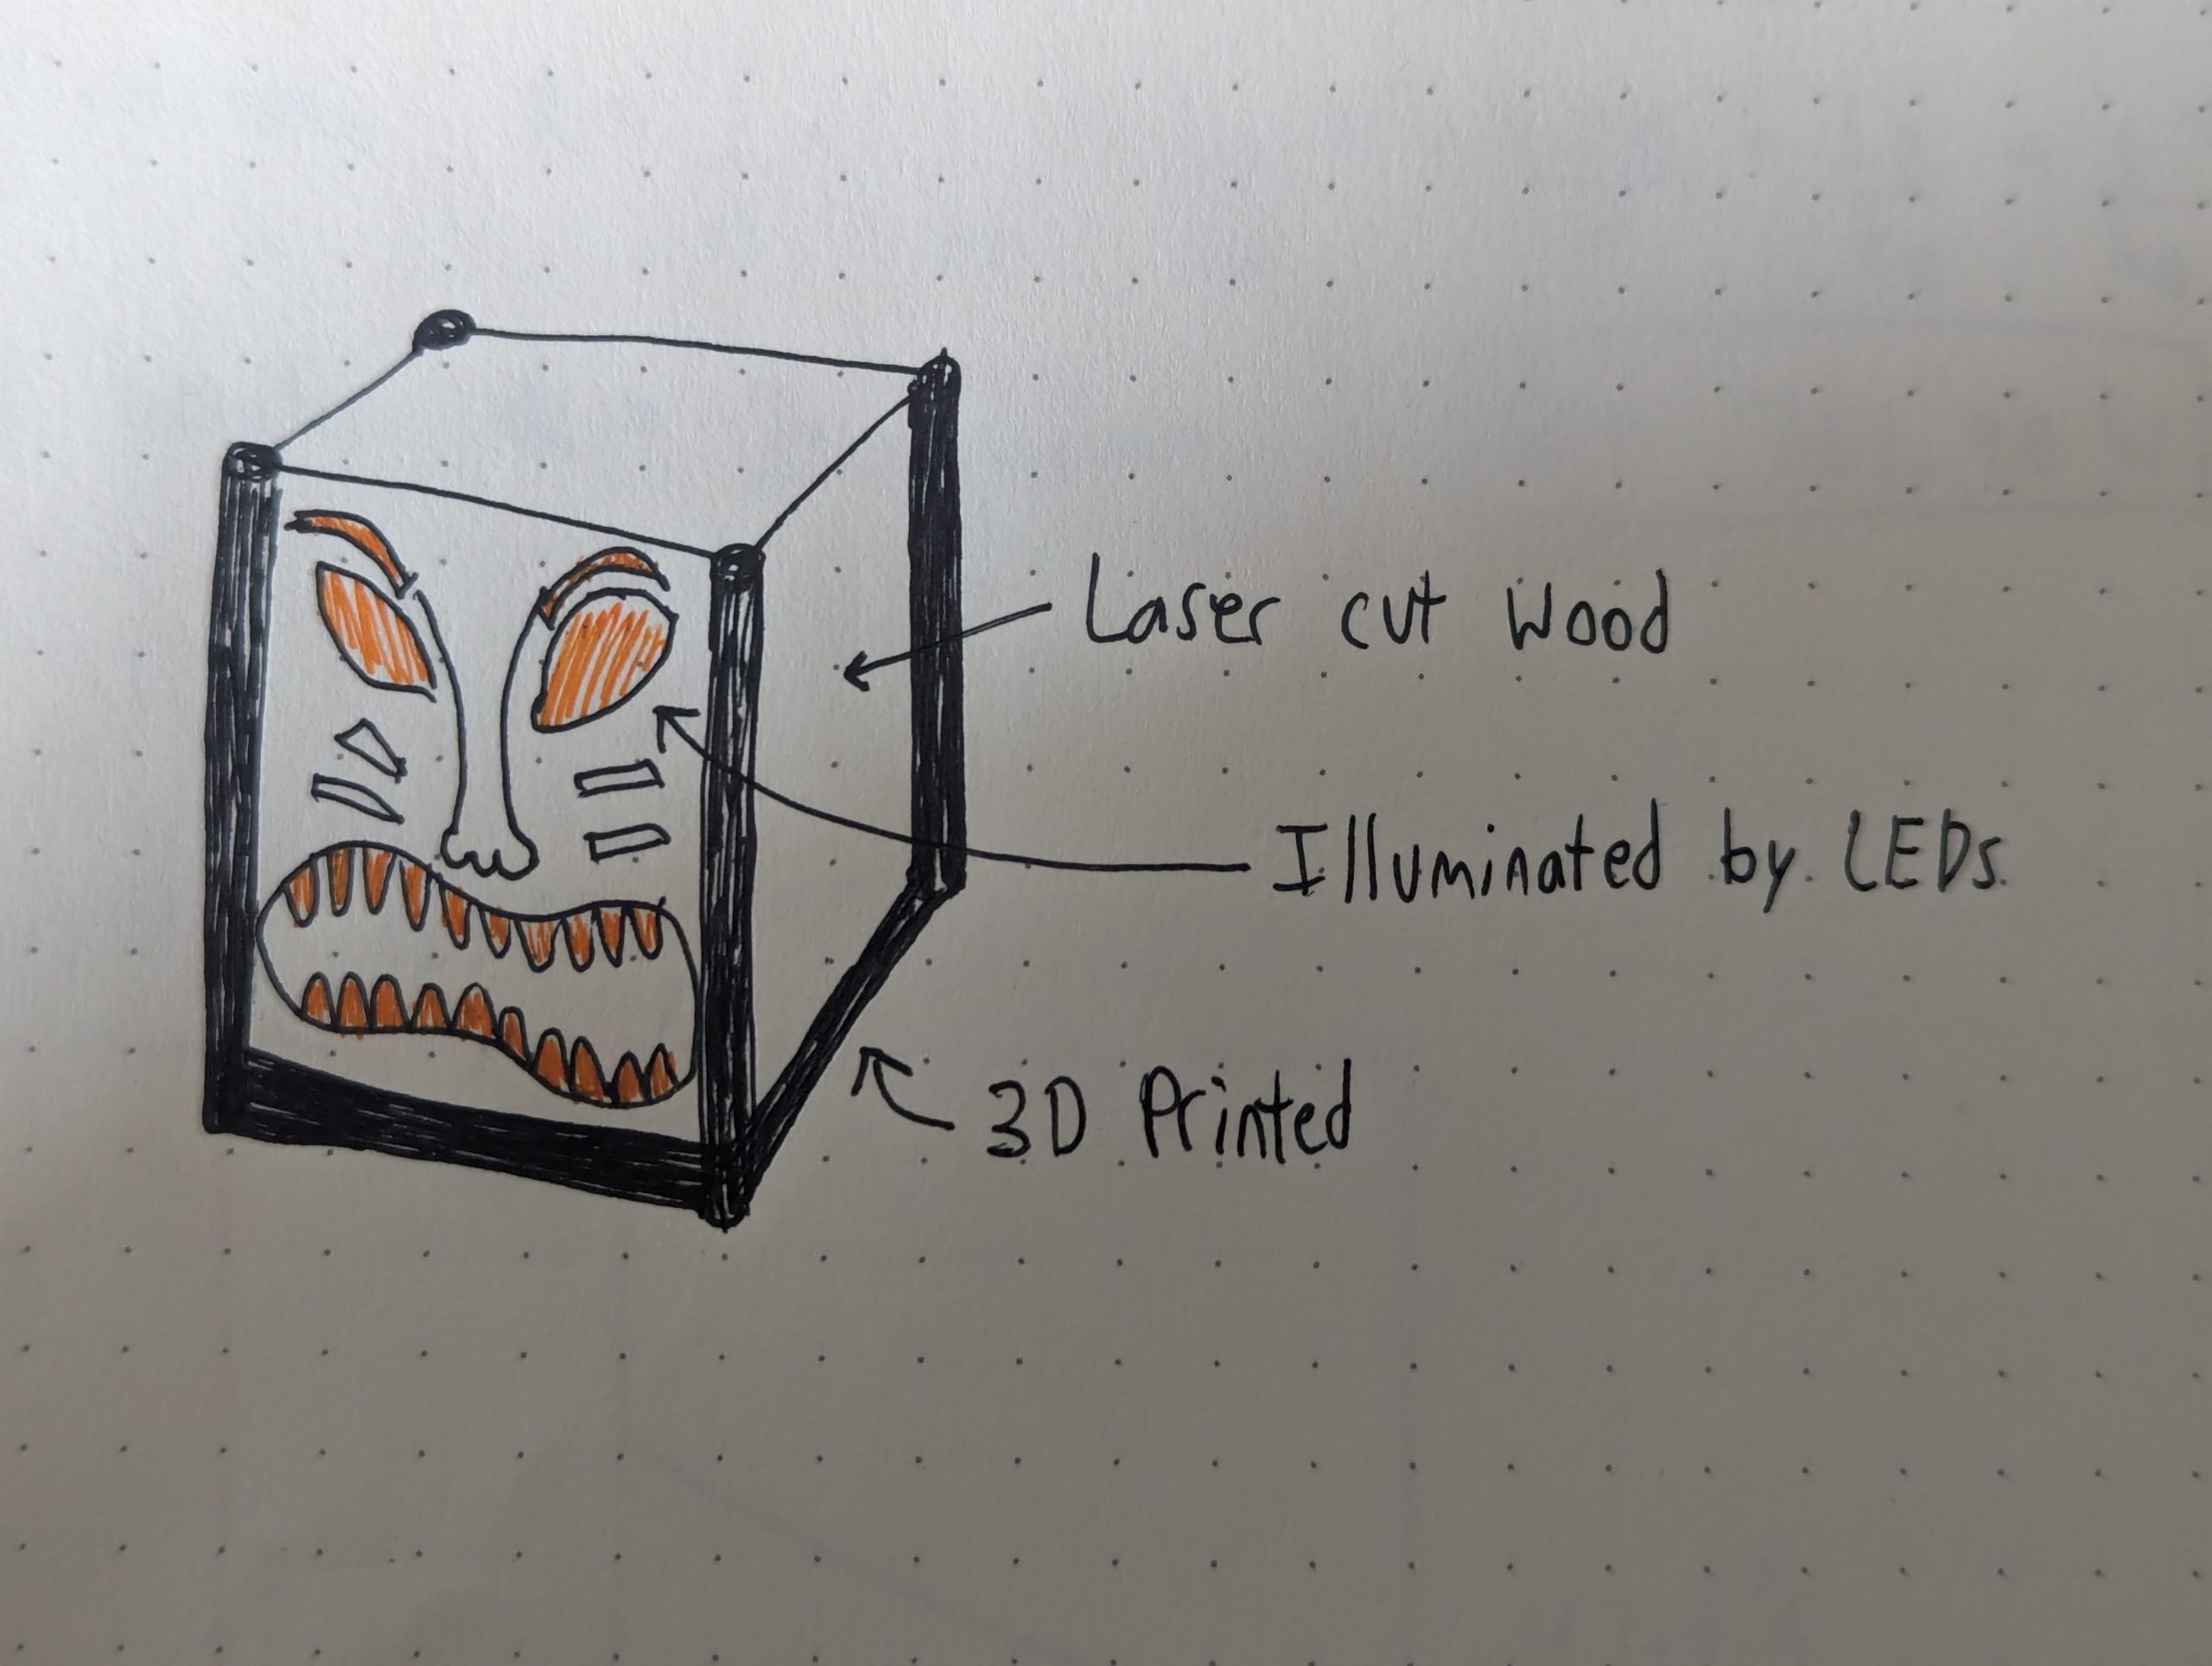 Laser cut Wood
Illuminated by LEDs
3D Printed